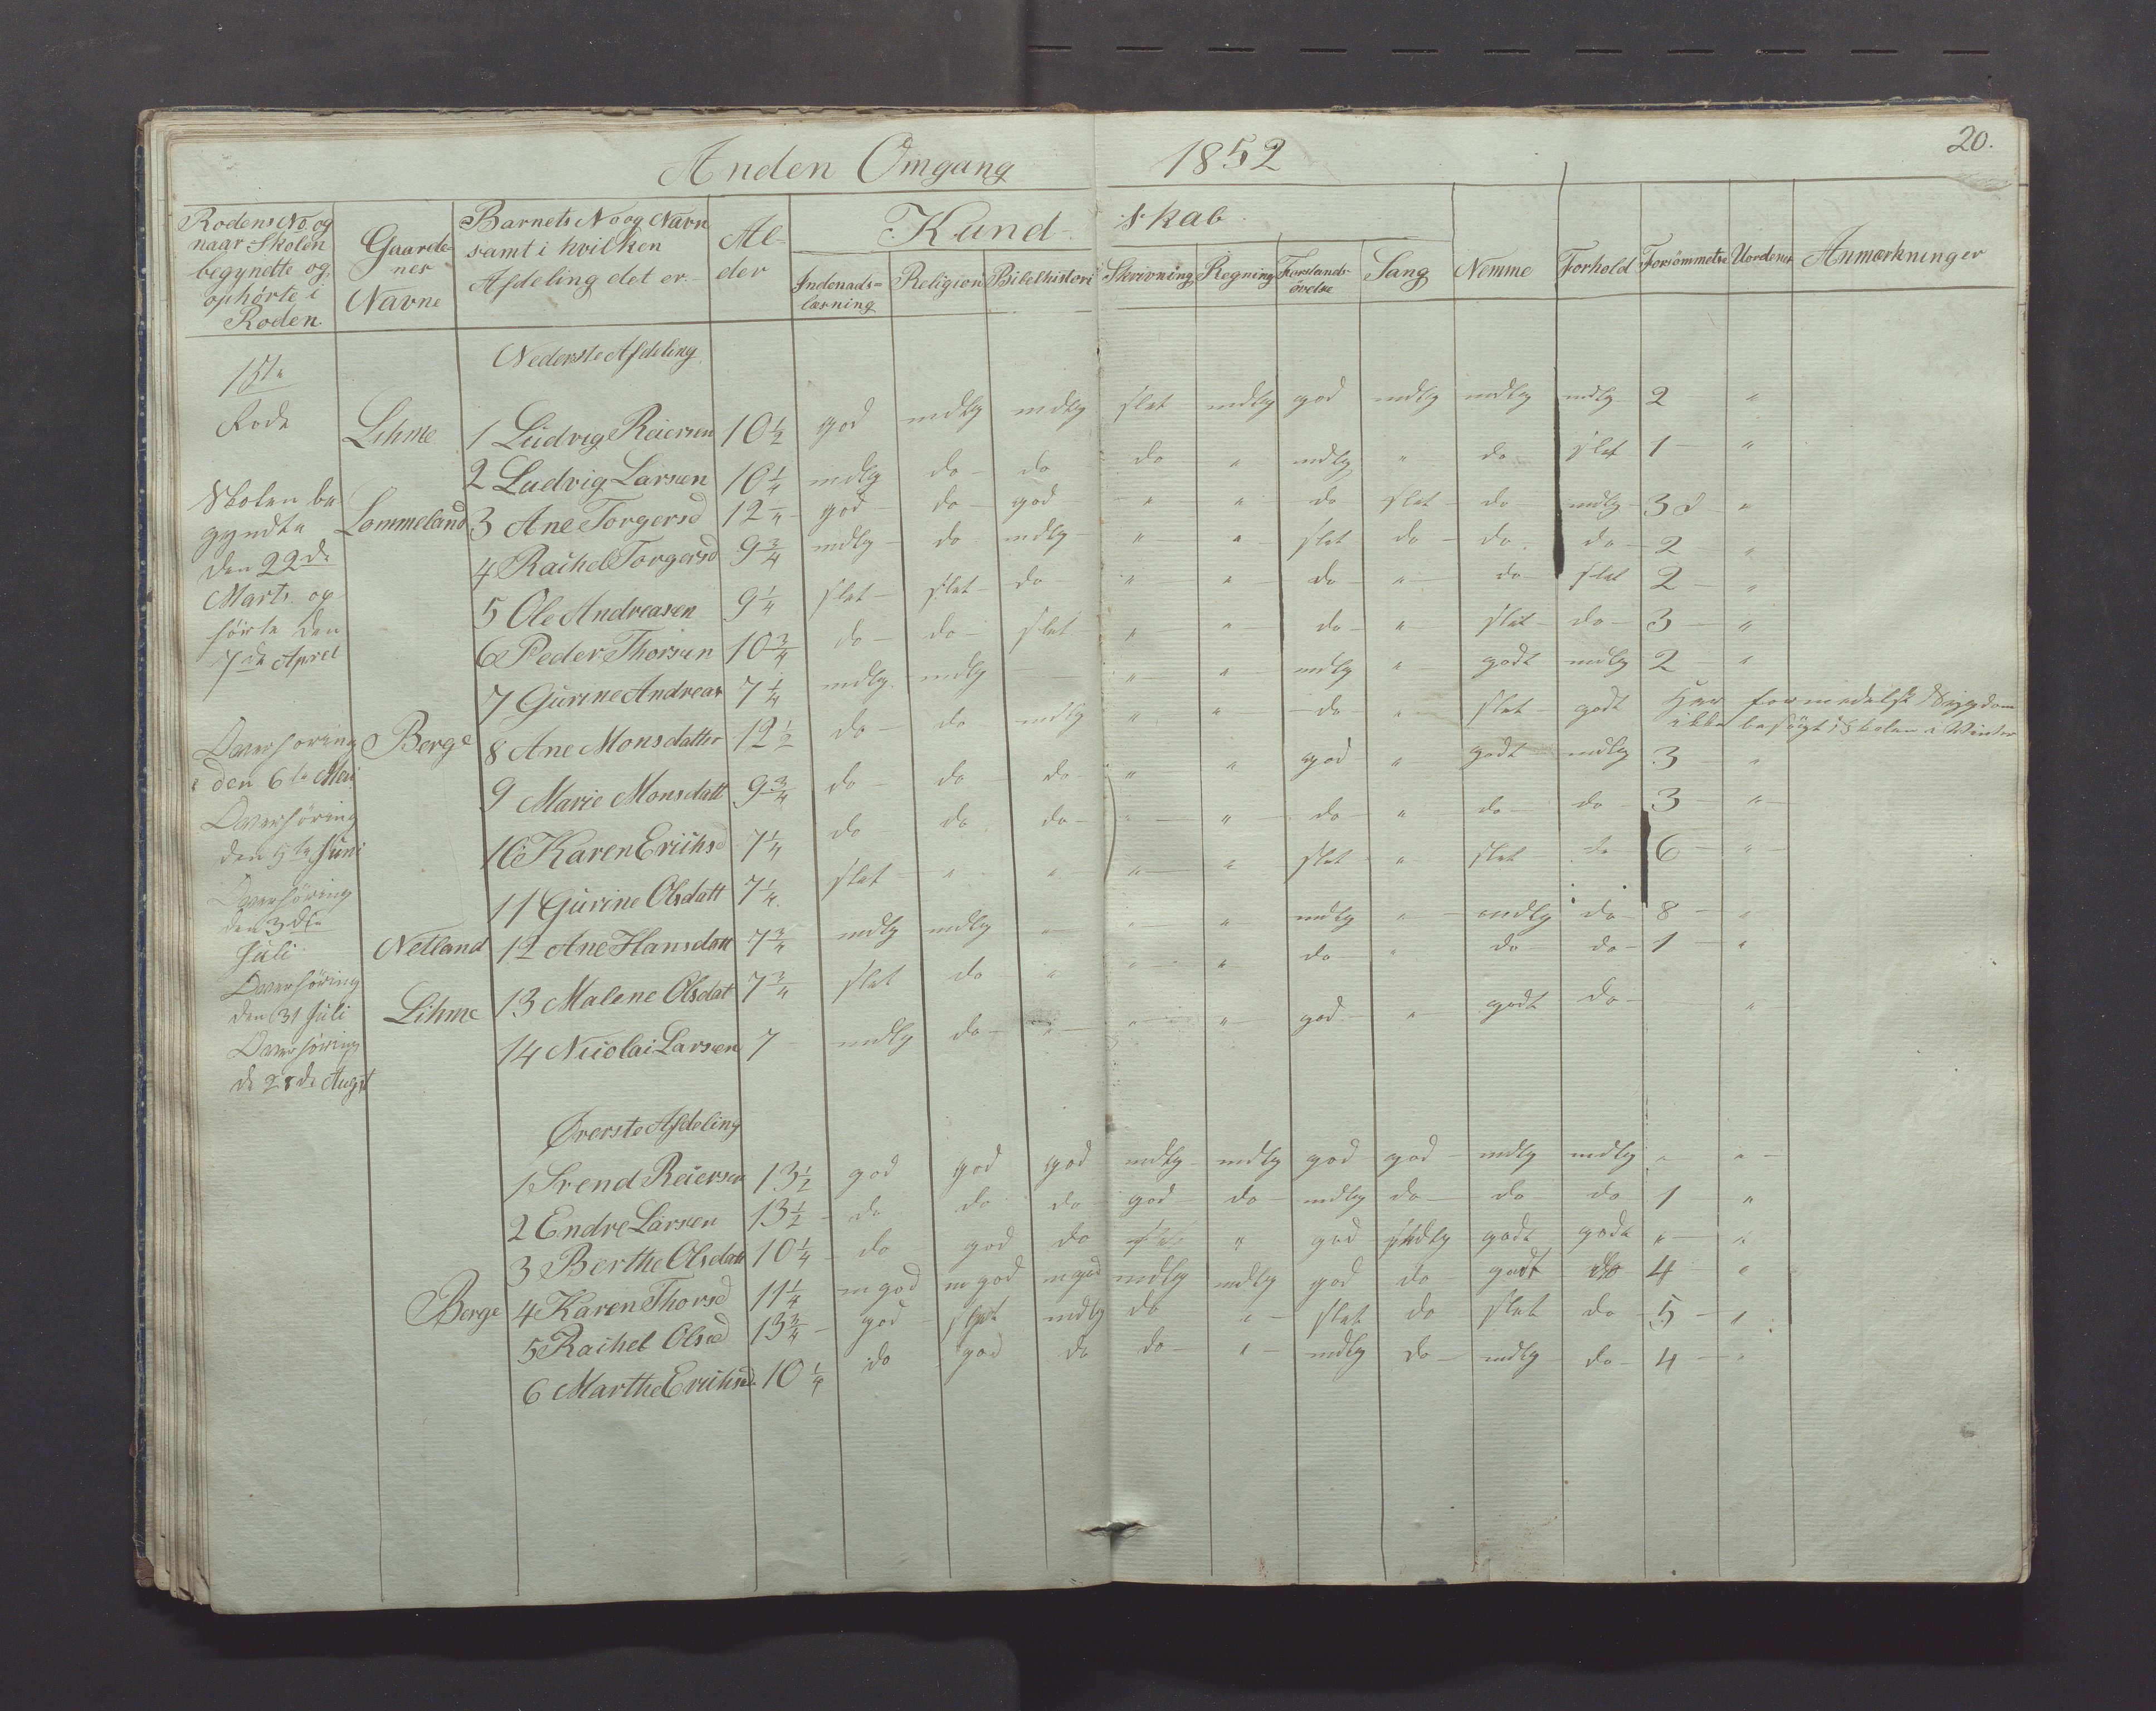 Anden Omgang 1852
20.
Rodens No. og naar Skolen begynette og ophørte i Roden.
Gaardenes Navne
Barnets No og Navn samt i hvilken Afdeling det er.
Alder
Kundskab
Indenadslæsning
Religion
Bibelhistori
Skrivning
Regning
Forstandsøvelse
Sang
Nemme
Forhold
Forsømmelse
Uordener
Anmærkninger
Nederste Afdeling
1ste
Rode
Lihme 1 Ludvig Reiersen 10½ god mdlg mdlg slet mdlg god mdlg mdlg mdlg 2 "
2 Ludvig Larsen 10¼ mdlg do do do " mdlg " do slet 1 "
Skolen be-
gyndte
Lommeland 3 Ane Torgersd 12 " god do god " " do slet do mdlg 3 d "
den 22de
4 Raihel Torgersd 9¾ mdlg do mdlg " " slet do do do 2 "
Marts op-
5 Ole Andreasen 9¼ slet slet do " " do " do slet 2 "
hørte den
7de Aprel
6 Peder Thorsen 10¾ do do slet " " do " slet do 3 "
7 Gurine Andreas 7¼ mdlg mdlg " " mdlg " godt mdlg 2 "
Overhøring
den 6te Mai
Berge 8 Ane Monsdatter 12½ do do mdlg " " do " slet godt Har formedelst Sygdom
ikke besøgt Skolen i Vinter
9 Marie Monsdatt 9¾ do do do " " god " godt mdlg 3 "
Overhøring
den 5te Juni
10 Karen Erichsd 7¼ do do do " " do " do do 3 "
11 Gurine Olsdatt 7¼ slet " " " " slet " slet do 6 "
Overhøring
den 3die
Juli
Netland 12 Ane Hansdatt 7¾ mdlg mdlg " " " mdlg " mdlg do 8 "
Overhøring
den 31 Juli
Lihme 13 Malene Olsdat 7¾ slet do " " " do " do do 1 "
Overhøring
d 28de Augst
14 Nicolai Larsen 7 mdlg do " " " god " godt do "
Øverste Afdeling
1 Svend Reiersen 13½ god god god mdlg mdlg god god mdlg mdlg " "
2 Endre Larsen 13½ do do do god do mdlg do do do 1 "
3 Berthe Olsdatt 10¼ do god do slet " god mdlg godt godt " "
Berge 4 Karen Thorsd 11¼ m god m god m god mdlg mdlg god do godt do 4 "
5 Raihel Olsd 13¾ god slet mdlg do " slet do slet do 5 "
6 Marthe Erichsd. 10¼ do god do do " mdlg do mdlg do 4 "